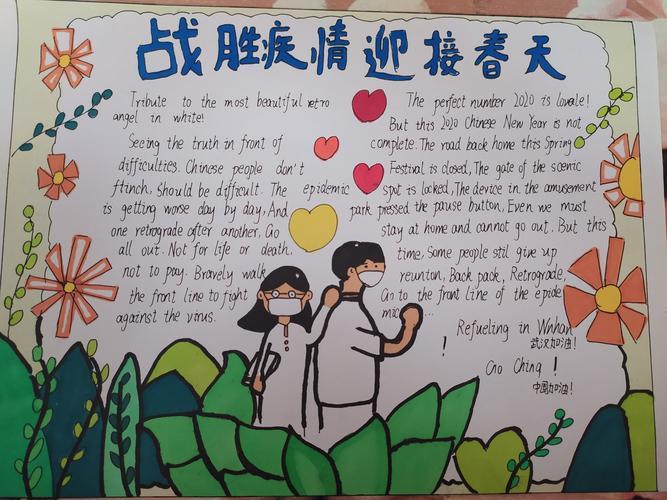 战胜疾情迎接春天
Tribute to the most beautiful retro
angel in white!
Seeing the truth in front of
difficulties. Chinese people don't
flinch, Should be difficult. The epidemic
is getting worse day by day, And
one retrograde after another, Go
all out. Not for life or death,
not to pay. Bravely walk
the front line to fight
against the virus.
The perfect number 2020 is lovele!
But this 2020 Chinese New Year is not
complete. The road back home this Spring
Festival is closed, The gate of the scenic
spot is locked, The device in the amusement
park pressed the pause button, Even we must
stay at home and cannot go out. But this
time, Some people still give up
reunion, Back pack, Retrograde,
Go to the front line of the epide
mic...
Refueling in Wnhan
!
武汉加油!
Go Ching!
中国加油!